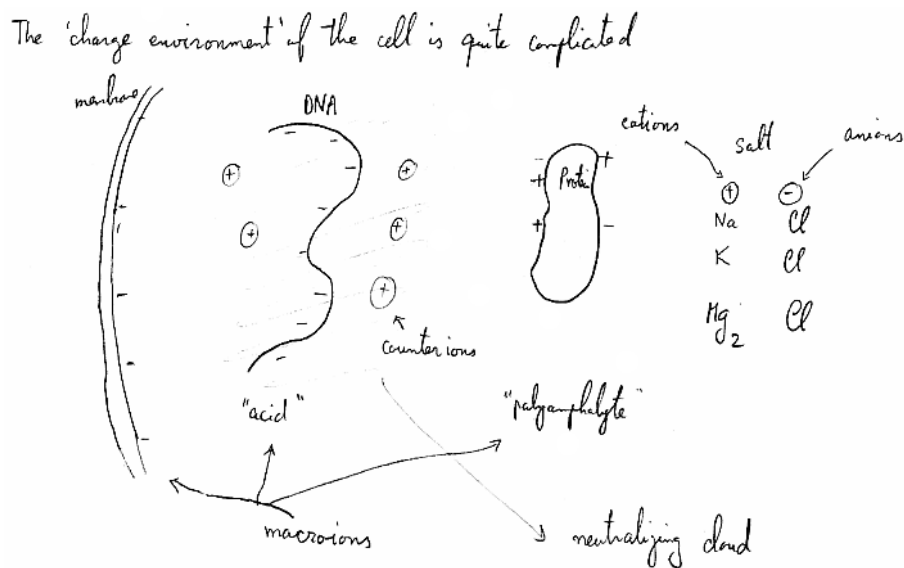 The 'charge environment' of the cell is quite complicated
membrane
DNA
cations
salt
anions
Protein
+ -
Na Cl
K Cl
Mg2 Cl
counterions
"acid"
"polyampholyte"
macroions
neutralizing cloud